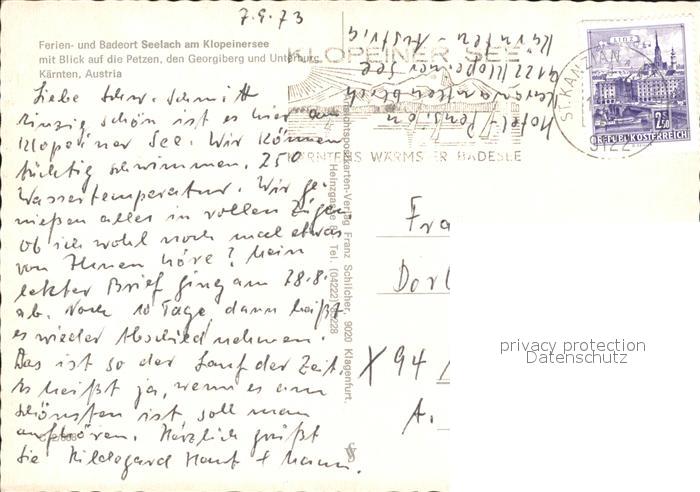 7.9.73
Ferien- und Badeort Seelach am Klopeinersee
mit Blick auf die Petzen, den Georgiberg und Unterburg
Kärnten, Austria
Liebe Schw. Schmitt
einzig schön ist es hier am
Klopeiner See. Wir können
tüchtig schwimmen. 25°
Wassertemperatur. Wir ge-
nießen alles in vollen Zügen
Ob ich wohl noch mal etwas
von Ihnen höre? Mein
letzter Brief ging am 28.8.
ab. Noch 10 Tage dann heißt
es wieder Abschied nehmen.
Das ist so der Lauf der Zeit.
Es heißt ja, wenn es am
schönsten ist soll man
aufhören. Herzlich grüßt
Sie Hildegard + Mann.
Hotel-Pension
9122 Klopeiner See
Kärnten - Austria
KLOPEINER SEE
KÄRNTENS WÄRMSTER BADESEE
ST. KANZIAN
9122
LINZ
2.50
REPUBLIK ÖSTERREICH
Ansichtspostkarten-Verlag Franz Schilcher, 9020 Klagenfurt,
Heinzgasse Tel. (04222)
Fra
Dort
X 94
A.
privacy protection
Datenschutz